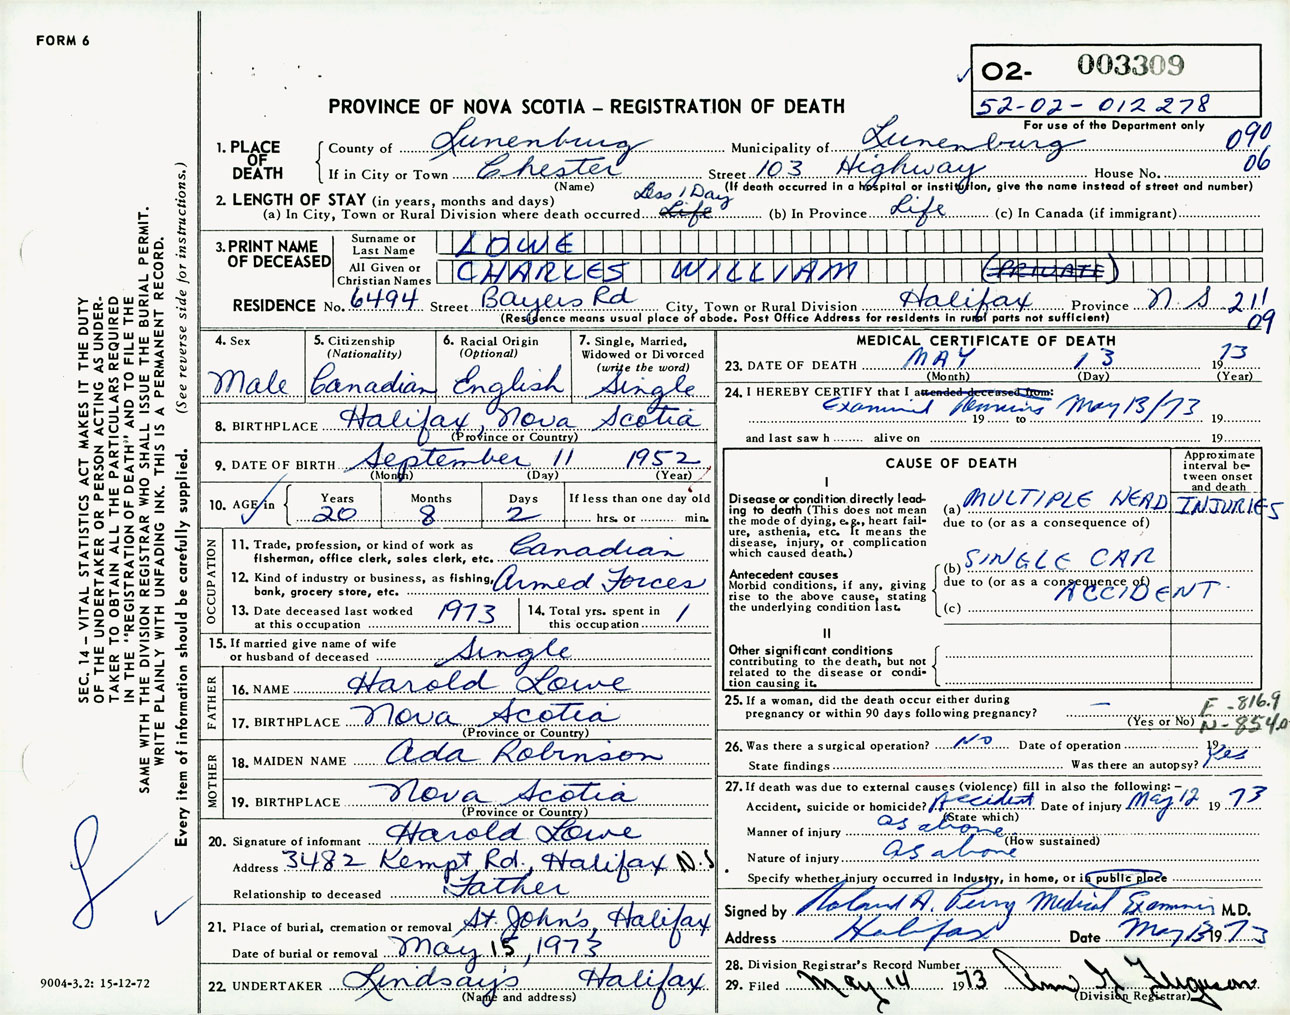 FORM 6
O2- 003309
52-02-012278
PROVINCE OF NOVA SCOTIA – REGISTRATION OF DEATH
For use of the Department only
090
06
1. PLACE OF DEATH
County of Lunenburg Municipality of Lunenburg
If in City or Town Chester Street 103 Highway House No.
(Name) (If death occurred in a hospital or institution, give the name instead of street and number)
2. LENGTH OF STAY (in years, months and days) Less 1 Day
(a) In City, Town or Rural Division where death occurred Life (b) In Province Life (c) In Canada (if immigrant)
3. PRINT NAME OF DECEASED
Surname or Last Name LOWE
All Given or Christian Names CHARLES WILLIAM (PRIVATE)
RESIDENCE No. 6494 Street Bayers Rd City, Town or Rural Division Halifax Province N.S 211
09
(Residence means usual place of abode. Post Office Address for residents in rural parts not sufficient)
4. Sex
Male
5. Citizenship (Nationality)
Canadian
6. Racial Origin (Optional)
English
7. Single, Married, Widowed or Divorced (write the word)
Single
8. BIRTHPLACE Halifax, Nova Scotia
(Province or Country)
9. DATE OF BIRTH September 11 1952
(Month) (Day) (Year)
10. AGE in Years 20 Months 8 Days 2
If less than one day old
hrs. or min.
OCCUPATION
11. Trade, profession, or kind of work as fisherman, office clerk, sales clerk, etc. Canadian
12. Kind of industry or business, as fishing, bank, grocery store, etc. Armed Forces
13. Date deceased last worked at this occupation 1973
14. Total yrs. spent in this occupation 1
15. If married give name of wife or husband of deceased Single
FATHER
16. NAME Harold Lowe
17. BIRTHPLACE Nova Scotia
(Province or Country)
MOTHER
18. MAIDEN NAME Ada Robinson
19. BIRTHPLACE Nova Scotia
(Province or Country)
20. Signature of informant Harold Lowe
Address 3482 Kempt Rd., Halifax N.S
Relationship to deceased Father
21. Place of burial, cremation or removal St. John's, Halifax
Date of burial or removal May 15, 1973
22. UNDERTAKER Lindsay's Halifax
(Name and address)
MEDICAL CERTIFICATE OF DEATH
23. DATE OF DEATH MAY 13 1973
(Month) (Day) (Year)
24. I HEREBY CERTIFY that I attended deceased from:
Examined Remains May 13/73
19 to 19
and last saw h alive on 19
CAUSE OF DEATH
Approximate interval between onset and death
I
Disease or condition directly leading to death (This does not mean the mode of dying, e.g., heart failure, asthenia, etc. It means the disease, injury, or complication which caused death.)
(a) MULTIPLE HEAD INJURIES
due to (or as a consequence of)
Antecedent causes
Morbid conditions, if any, giving rise to the above cause, stating the underlying condition last.
(b) SINGLE CAR
due to (or as a consequence of)
ACCIDENT
(c)
II
Other significant conditions
contributing to the death, but not related to the disease or condition causing it.
25. If a woman, did the death occur either during pregnancy or within 90 days following pregnancy? –
(Yes or No)
E -816.9
N-854.0
26. Was there a surgical operation? No Date of operation 19
State findings Was there an autopsy? Yes
27. If death was due to external causes (violence) fill in also the following:-
Accident, suicide or homicide? Accident Date of injury May 12 1973
(State which)
Manner of injury as above (How sustained)
Nature of injury as above
Specify whether injury occurred in industry, in home, or in public place
Signed by Roland A. Perry Medical Examiner M.D.
Address Halifax Date May 13 1973
28. Division Registrar's Record Number
29. Filed May 14 1973 Ann G Ferguson
(Division Registrar)
SEC. 14 – VITAL STATISTICS ACT MAKES IT THE DUTY
OF THE UNDERTAKER OR PERSON ACTING AS UNDER-
TAKER TO OBTAIN ALL THE PARTICULARS REQUIRED
IN THE "REGISTRATION OF DEATH" AND TO FILE THE
SAME WITH THE DIVISION REGISTRAR WHO SHALL ISSUE THE BURIAL PERMIT.
WRITE PLAINLY WITH UNFADING INK. THIS IS A PERMANENT RECORD.
Every item of information should be carefully supplied. (See reverse side for instructions.)
9004-3.2: 15-12-72